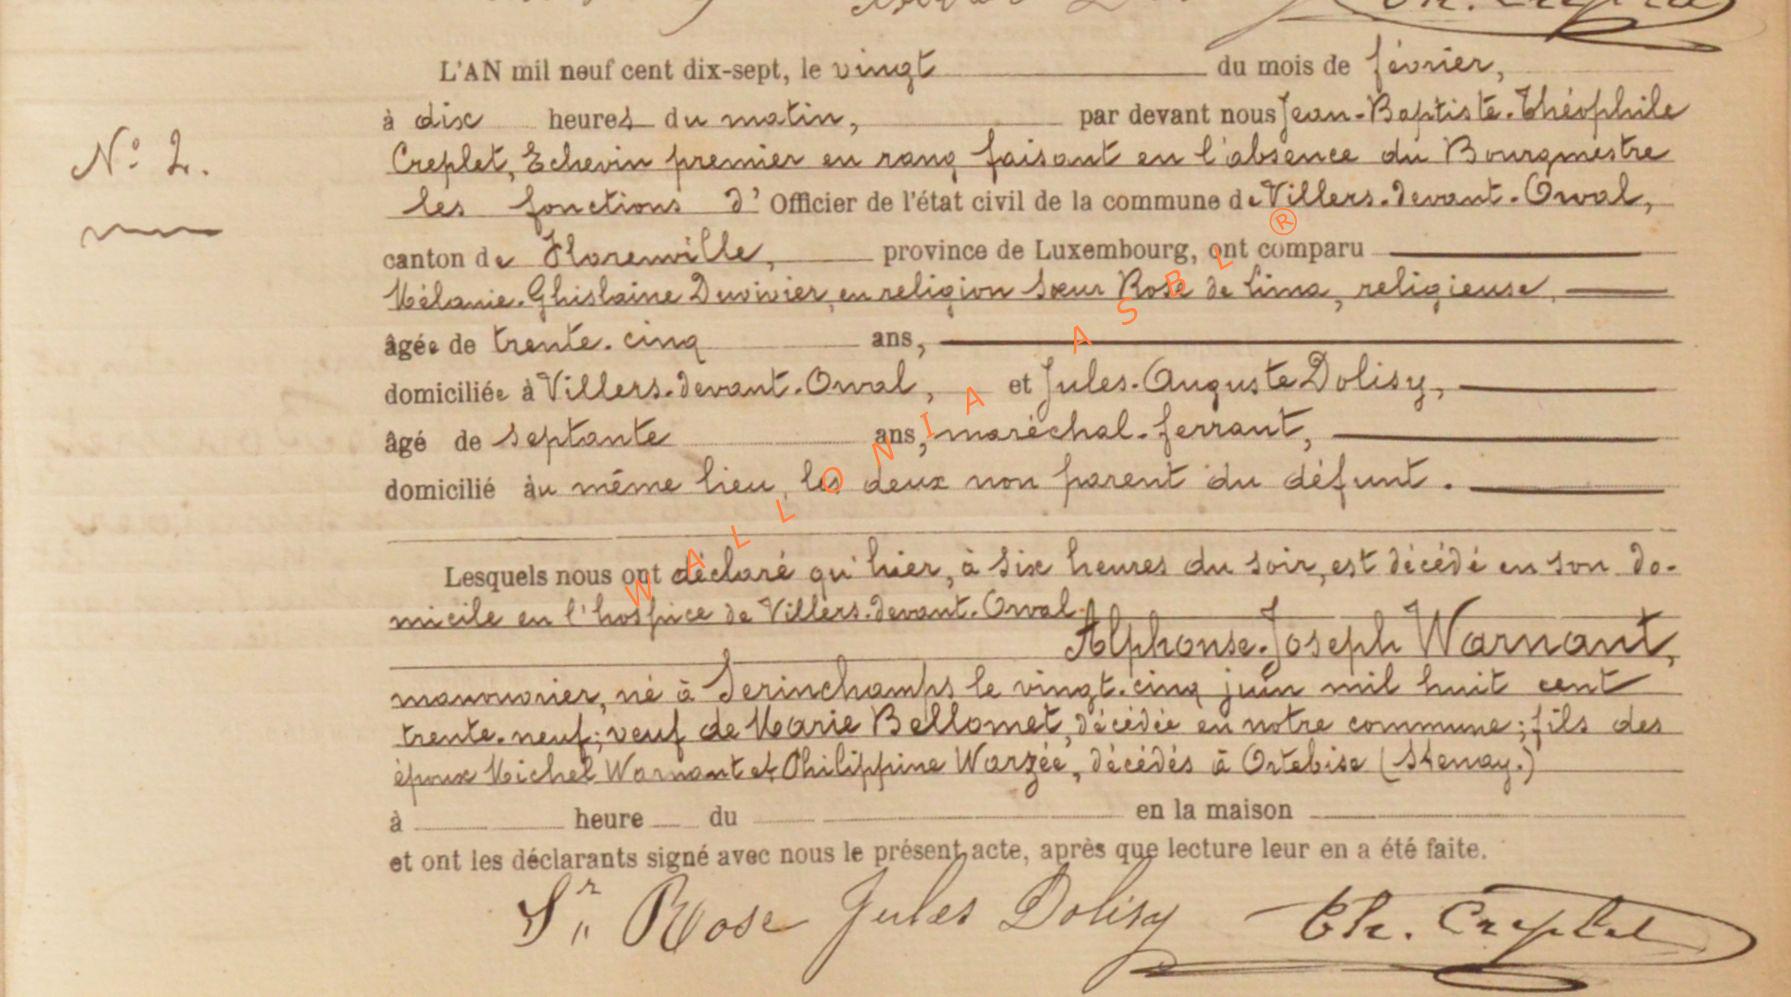 L'AN mil neuf cent dix-sept, le vingt du mois de février,
à dix heures du matin, par devant nous Jean-Baptiste-Théophile
N° 2.
Creplet, Echevin premier en rang faisant en l'absence du Bourgmestre
les fonctions d'Officier de l'état civil de la commune de Villers-devant-Orval,
canton de Florenville, province de Luxembourg, ont comparu
Mélanie-Ghislaine Duvivier, en religion Sœur Rose de Lima, religieuse,
âgée de trente-cinq ans,
domiciliée à Villers-devant-Orval, et Jules-Auguste Dolisy,
âgé de septante ans, maréchal-ferrant,
domicilié au même lieu, les deux non parent du défunt.
Lesquels nous ont déclaré qu'hier, à six heures du soir, est décédé en son do-
micile en l'hospice de Villers-devant-Orval
Alphonse-Joseph Warnant,
manouvrier, né à Serinchamps le vingt-cinq juin mil huit cent
trente-neuf; veuf de Marie Bellomet, décédée en notre commune; fils des
époux Michel Warnant et Philippine Warzée, décédés à Ortebise (Stenay.)
à heure du en la maison
et ont les déclarants signé avec nous le présent acte, après que lecture leur en a été faite.
Sr Rose Jules Dolisy Th. Creplet
WALLONIA ASBL ®